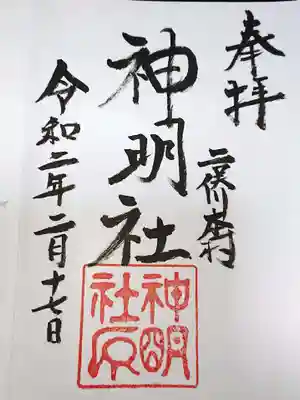 奉拝
二俣川村
神明社
令和二年二月十七日
神明
社印